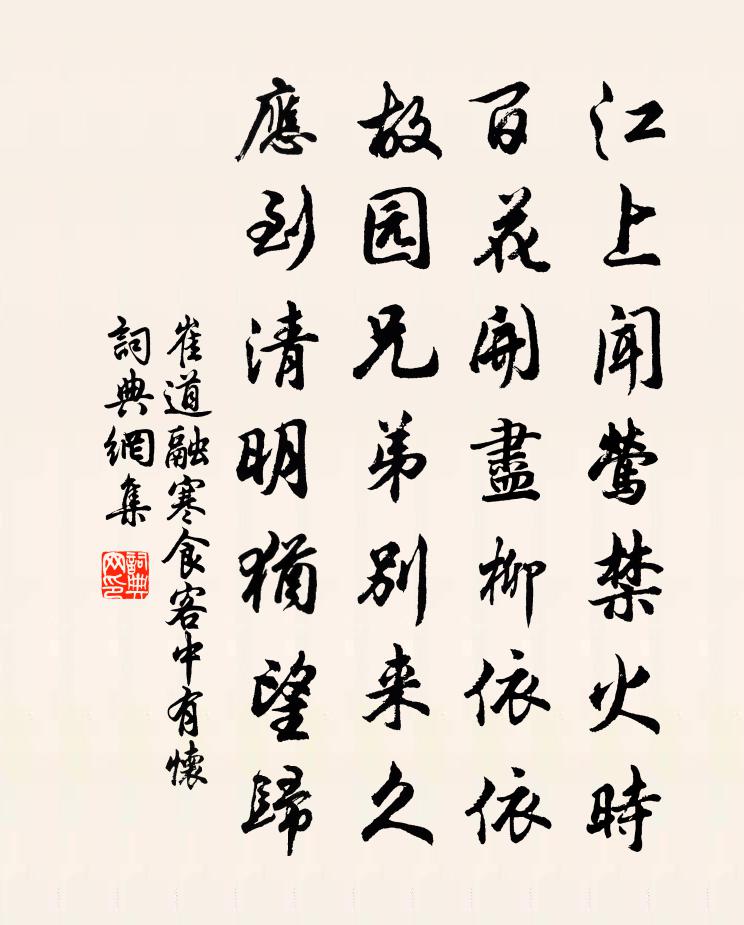 江上闻莺禁火时
百花開盡柳依依
故园兄弟别来久
應到清明猶望歸
崔道融寒食客中有懷
詞典網集
詞典
网印